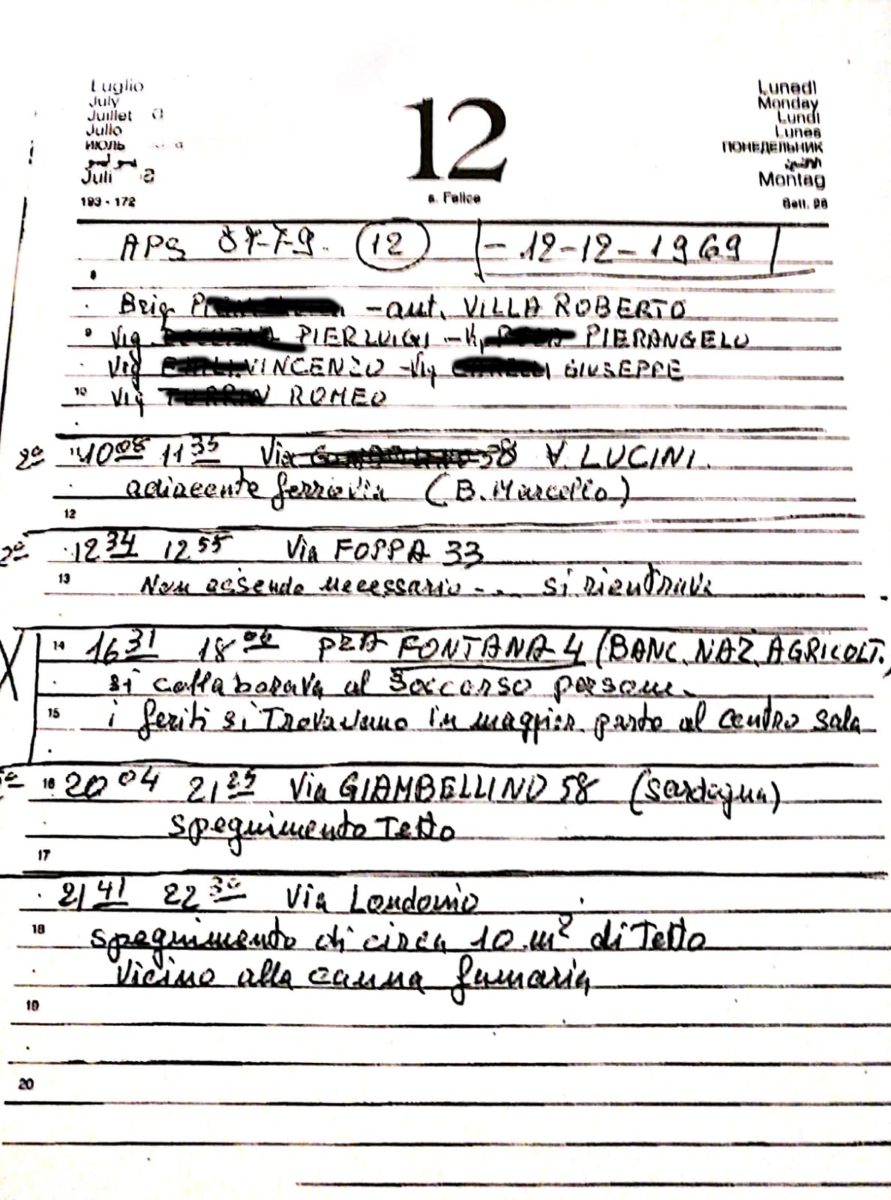 Luglio
July
Juillet
Julio
ИЮЛЬ
يوليو
Juli
193 - 172
12
s. Felice
Lunedì
Monday
Lundi
Lunes
ПОНЕДЕЛЬНИК
الاثنين
Montag
Sett. 28
APS 87-7-9. 12 - 12-12-1969
Brig - aut. VILLA ROBERTO
9 Vig PIERLUIGI - V, PIERANGELO
Vig VINCENZO - Vig GIUSEPPE
10 Vig ROMEO
2ª 11 10 08 11 35 Via 58 V. LUCINI.
adiacente ferrovia (B. Marcello)
12
2ª 12 34 12 55 Via FOPPA 33
13 Non essendo necessario - .. si rientrava
X 14 16 31 18 06 PZA FONTANA 4 (BANC. NAZ. AGRICOLT.)
si collaborava al Soccorso persone.
15 i feriti si Trovavano in maggior parte al centro sala
16 20 04 21 25 Via GIAMBELLINO 58 (Sardegna)
spegnimento Tetto
17
21 41 22 30 Via Londonio
18 spegnimento di circa 10 m² di Tetto
Vicino alla canna fumaria
19
20